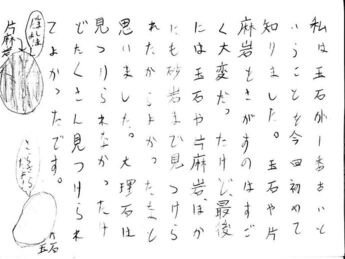 私は玉石が一番多いと
いうことを今回初めて
知りました。玉石や片
麻岩もさがすのはすご
く大変だったけど、最後
には玉石や片麻岩、ほか
にも砂岩まで見つけら
れたからよかったなと
思いました。大理石は
見つけられなかったけ
どたくさん見つけられ
てよかったです。
片麻岩
玉石